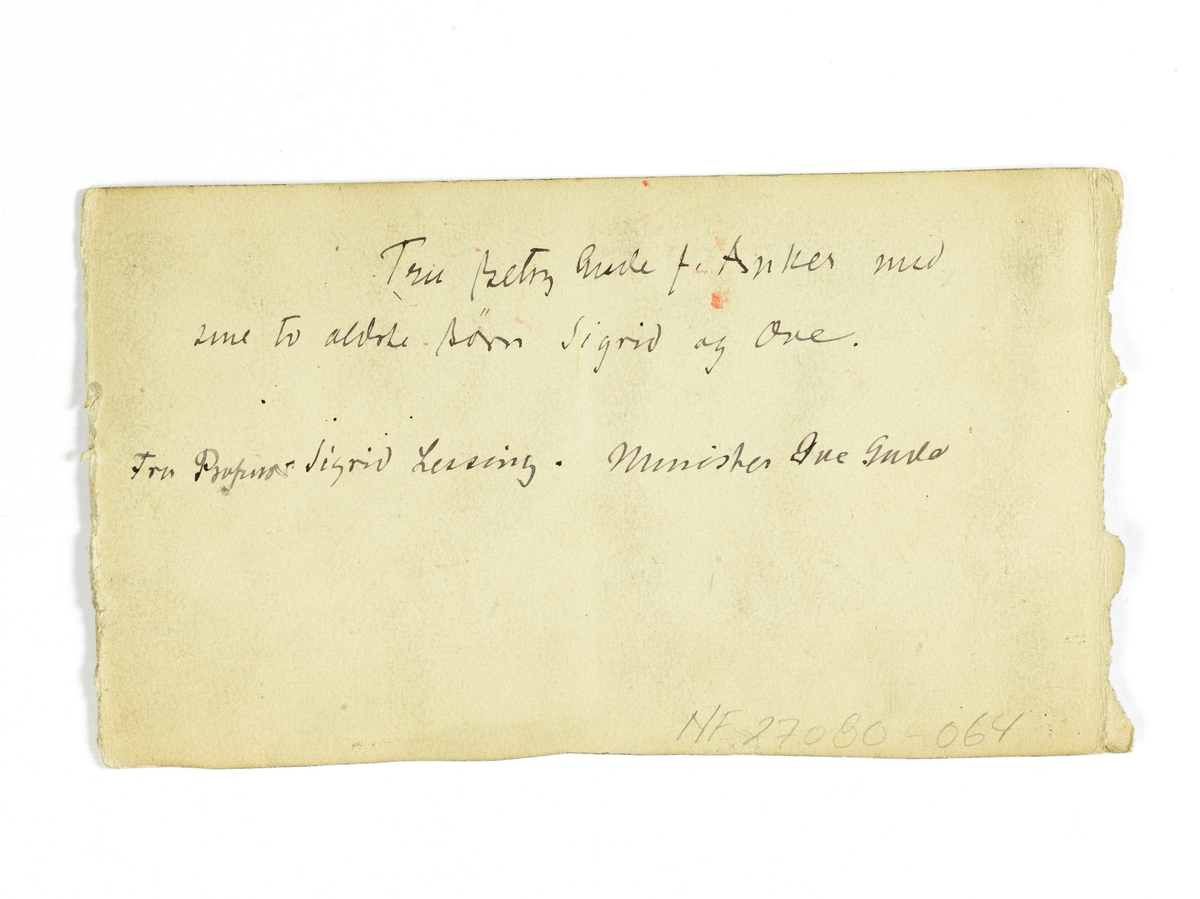 Fru Betsy Gude f. Anker med
sine to ældste Börn Sigrid og Ove.
Fru Professor Sigrid Lessing. Minister Ove Gude
NF 27080-064